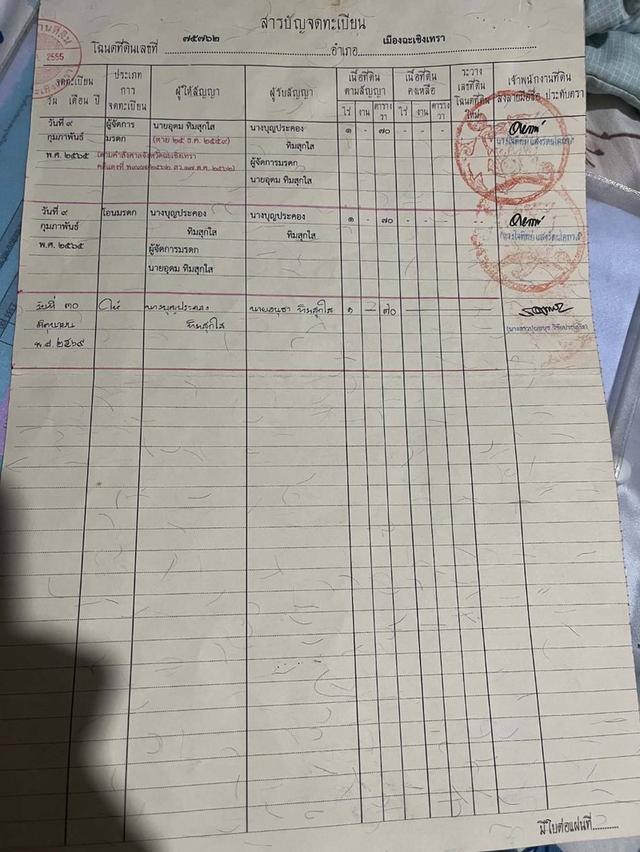 สารบัญจดทะเบียน
โฉนดที่ดินเลขที่ ๗๕๗๖๒ อำเภอ เมืองฉะเชิงเทรา
2555
จดทะเบียน วัน เดือน ปี
ประเภทการจดทะเบียน
ผู้ให้สัญญา
ผู้รับสัญญา
เนื้อที่ดินตามสัญญา
ไร่ งาน ตารางวา
เนื้อที่ดินคงเหลือ
ไร่ งาน ตารางวา
ระวาง เลขที่ดิน โฉนดที่ดินใหม่
เจ้าพนักงานที่ดิน ลงลายมือชื่อ ประทับตรา
วันที่ ๙ ผู้จัดการ นายอุดม ทิมสุกใส นางบุญประคอง ๑ - ๗๐ - - -
กุมภาพันธ์ มรดก (ตาย ๒๕ ธ.ค. ๒๕๕๙) ทิมสุกใส
พ.ศ. ๒๕๖๕ ผู้จัดการมรดก
นายอุดม ทิมสุกใส
วันที่ ๙ โอนมรดก นางบุญประคอง นางบุญประคอง ๑ - ๗๐ - - -
กุมภาพันธ์ ทิมสุกใส ทิมสุกใส
พ.ศ. ๒๕๖๕ ผู้จัดการมรดก
นายอุดม ทิมสุกใส
วันที่ ๓๐ ให้ นางบุญประคอง ทิมสุกใส ๑ - ๗๐
ทิมสุกใส
พ.ศ. ๒๕๖๙
มีใบต่อแผ่นที่